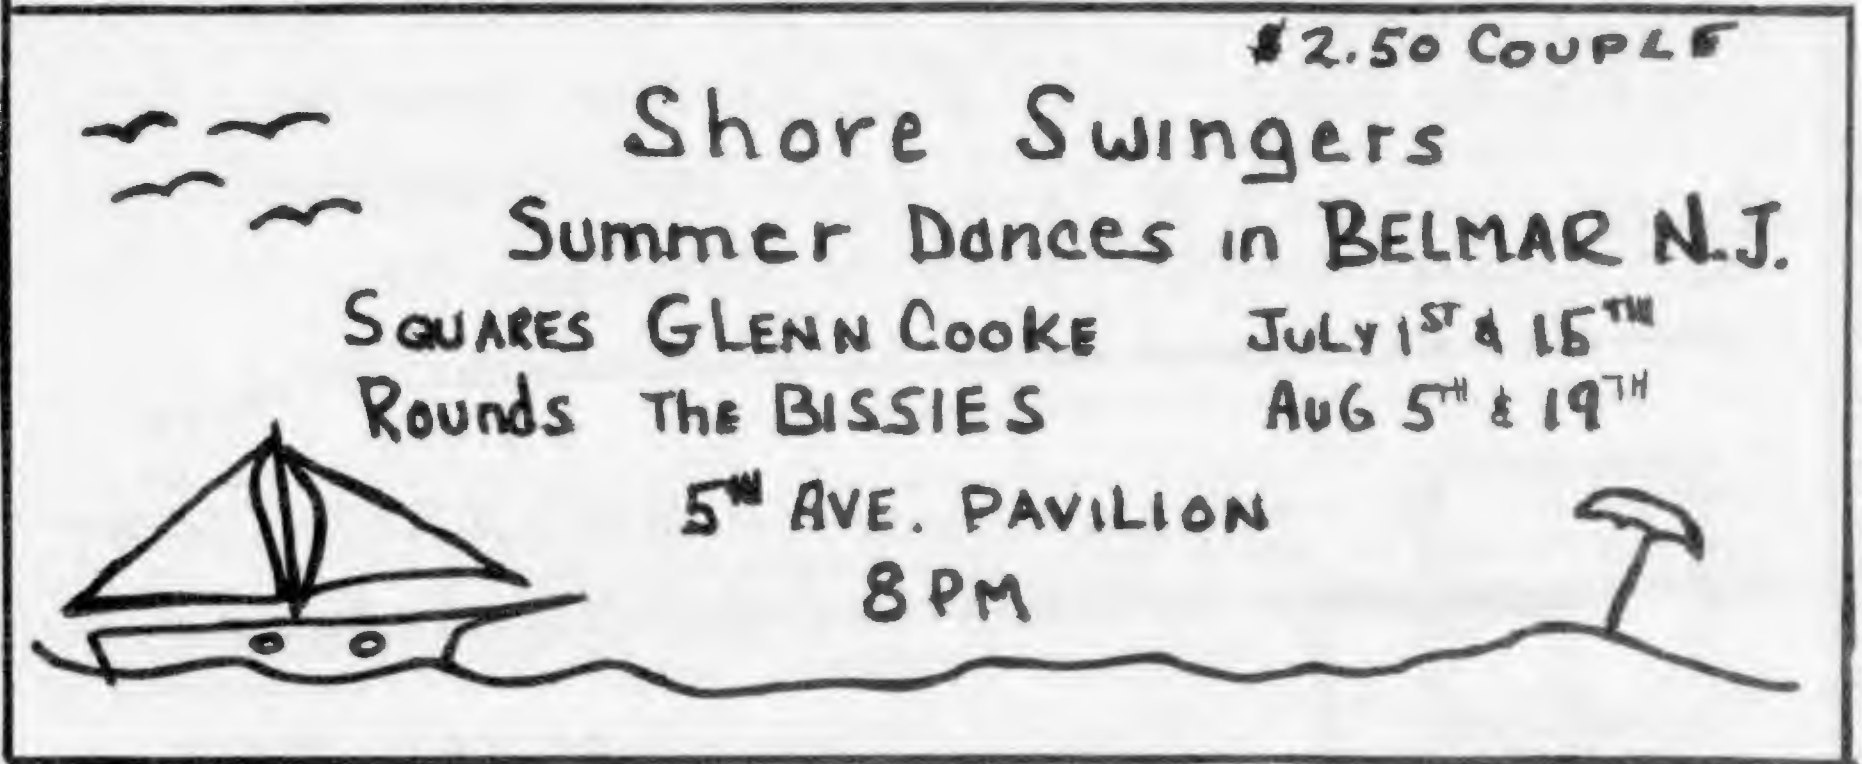 $2.50 COUPLE
Shore Swingers
Summer Dances in BELMAR N.J.
SQUARES GLENN COOKE JULY 1ST & 15TH
Rounds The BISSIES AUG 5TH & 19TH
5TH AVE. PAVILION
8 PM